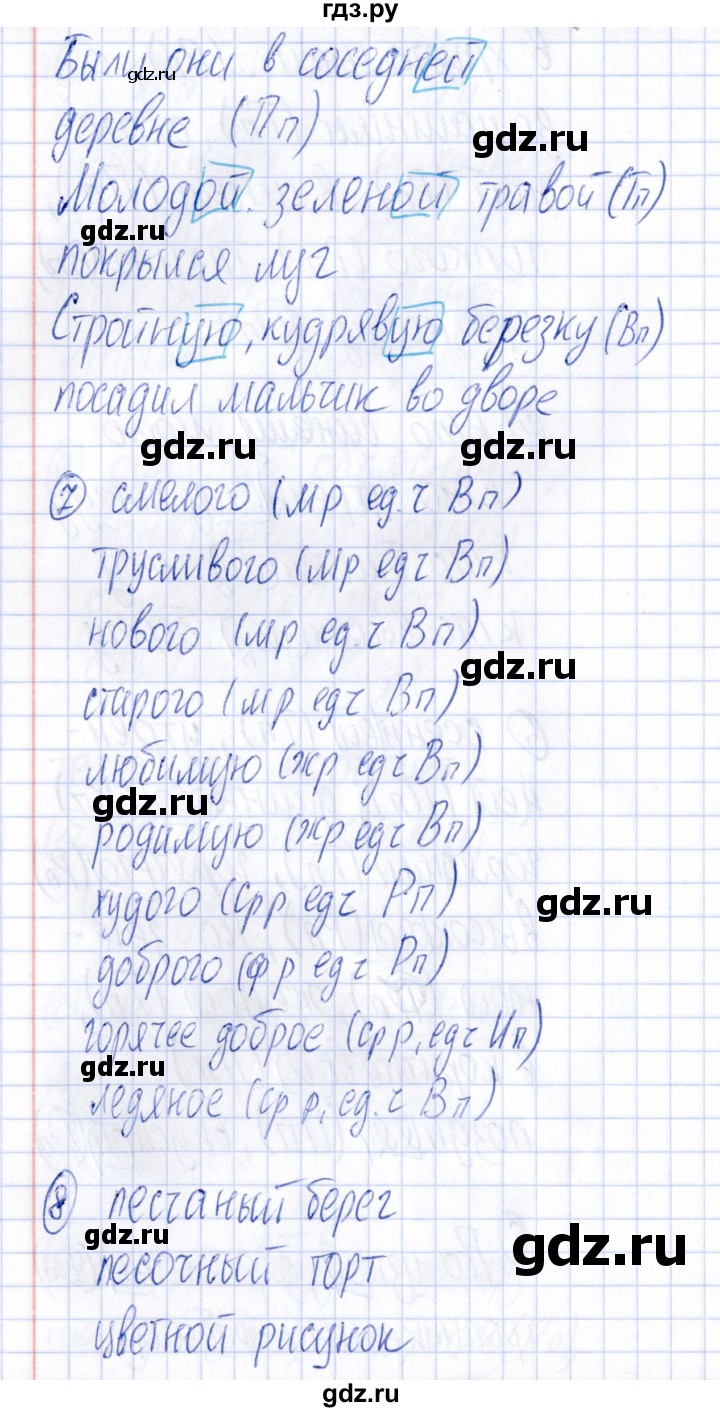 гдз.ру
Были они в соседней
деревне (Пп)
gdz.ru
Молодой. зеленой травой (Тп)
gdz.ru
покрылся луг
Стройную, кудрявую березку (Вп)
посадил мальчик во дворе
gdz.ru gdz.ru
7 смелого (мр ед.ч Вп)
трусливого (мр едч Вп)
нового (мр ед.ч Вп)
gdz.ru
старого (мр едч Вп)
любимую (жр едч Вп)
gdz.ru
родимую (жр едч Вп)
худого (срр едч Рп)
gdz.ru
доброго (фр едч Рп)
горячее доброе (срр, едч Ип)
gdz.ru
ледяное (ср р, ед.ч Вп)
8 песчаный берег
gdz.ru
gdz.ru
песочный торт
цветной рисунок
gdz.ru